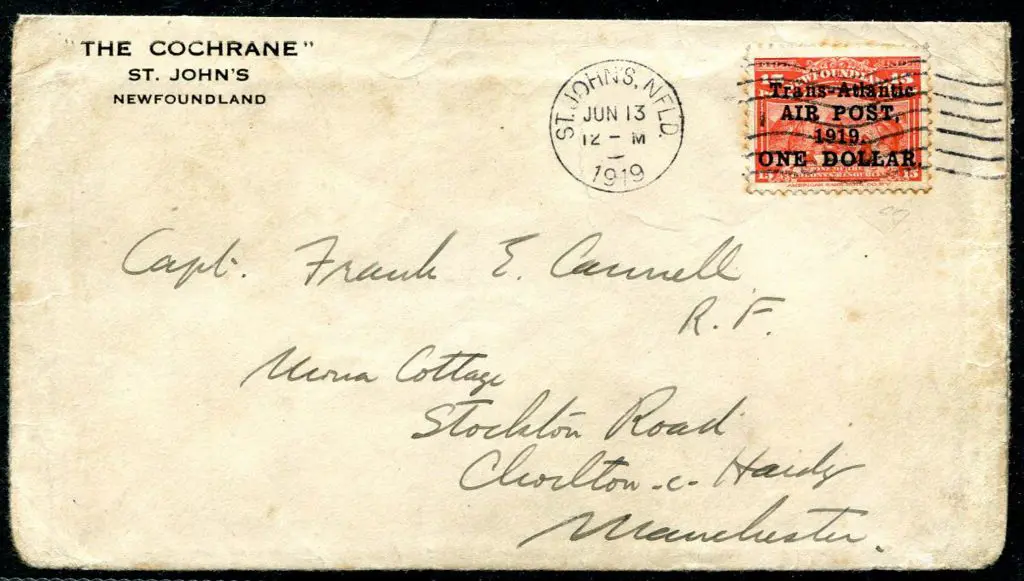 "THE COCHRANE"
ST. JOHN'S
NEWFOUNDLAND
ST. JOHN'S, NFLD.
JUN 13
12 - M
1919
15 NEWFOUNDLAND 15
Trans-Atlantic
AIR POST,
1919.
ONE DOLLAR.
15 15
Capt. Frank E. Cannell
R. F.
Mona Cottage
Stockton Road
Chorlton-c-Hardy
Manchester.